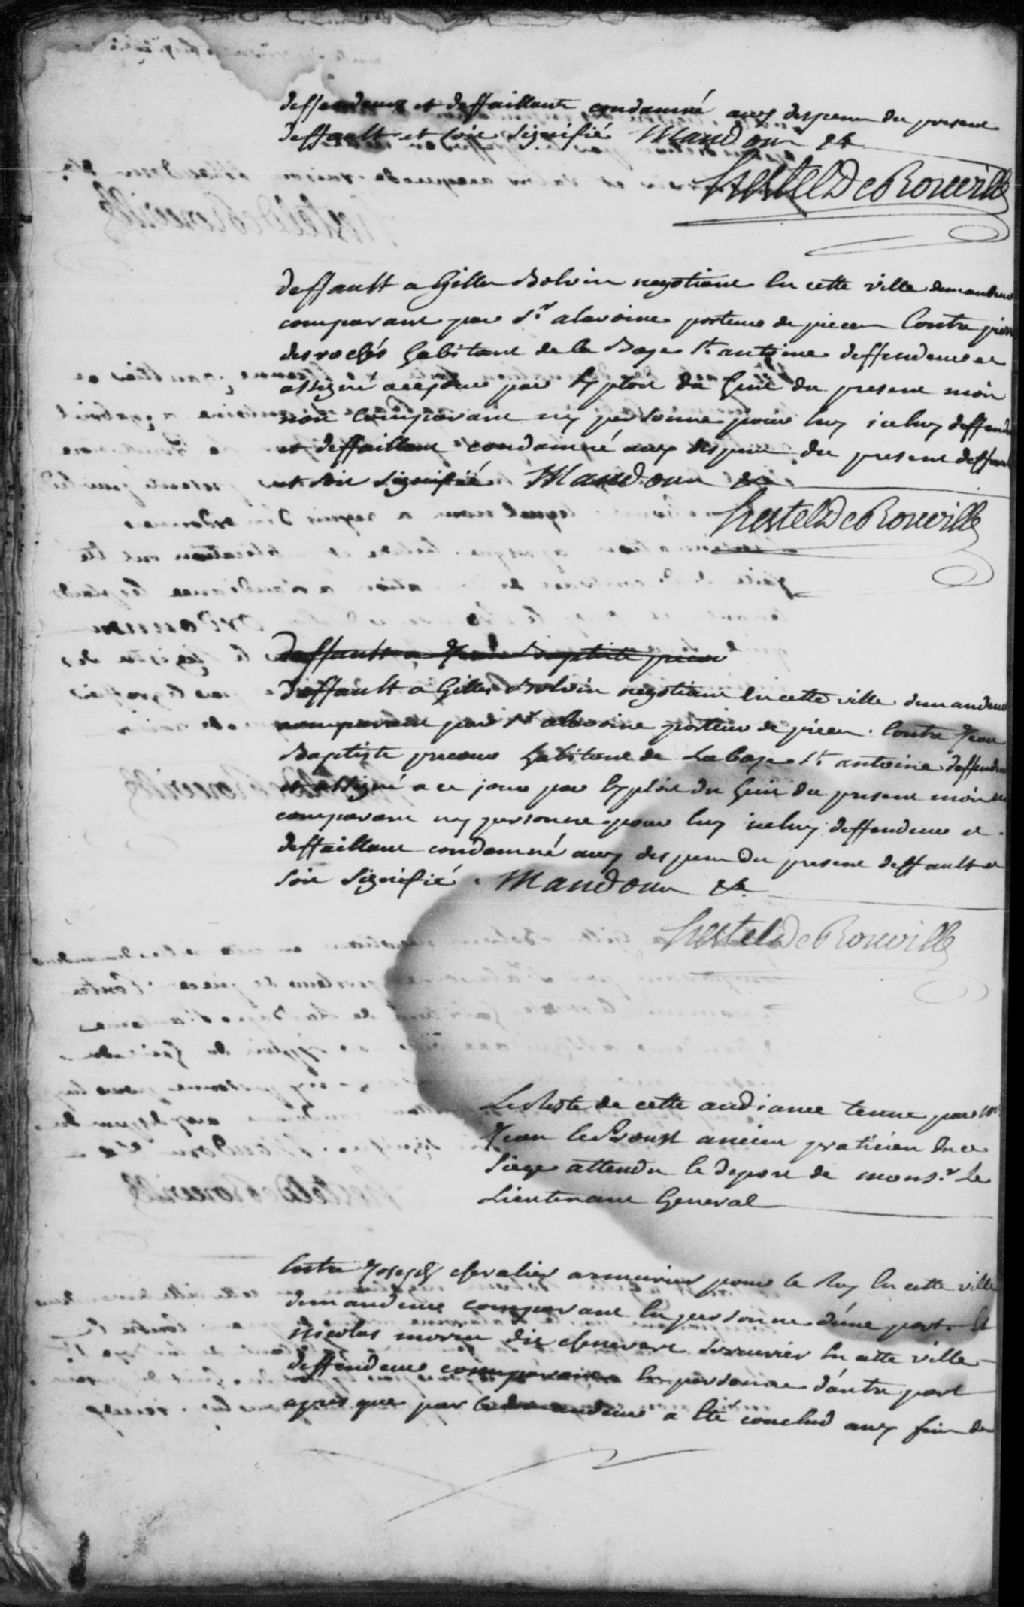 deffendeur et deffaillant condamné aux depens du present
deffault et soit signifié Mandons &c
Hertel De Rouville
deffault a Gilles Bolvin negotiant En cette ville demandeur
comparant par Sr. alavoine porteur de pieces Contre pierre
desrochés habitant de la Baye St. antoine deffendeur et
assigné a ce jour par Exploit du huit du present mois
non Comparant ny personne pour luy iceluy deffendeur
et deffaillant condamné aux depens du present deffault
et soit signifié Mandons &c
Hertel De Rouville
deffault a Jean Baptiste
deffault a Gilles Bolvin negotiant En cette ville demandeur
comparant par Sr. alavoine porteur de pieces. Contre Jean
Baptiste precour habitant de La baye St. antoine deffendeur
et assigné a ce jour par Exploit du huit du present mois non
comparant ny personne pour luy iceluy deffendeur et
deffaillant condamné aux depens du present deffault et
soit signifié. Mandons &c
Hertel De Rouville
Le Reste de cette audiance tenue par Me.
Jean le Proust ancien praticien En ce
Siege attendu le deport de monsr. Le
Lieutenant General
Entre Joseph chevalier armurier pour le Roy En cette ville
demandeur comparant En personne d'une part. Et
Nicolas morin dit chenevert serrurier En cette ville
deffendeur comparant En personne d'autre part
apres que par le demandeur a Eté conclud aux fins de